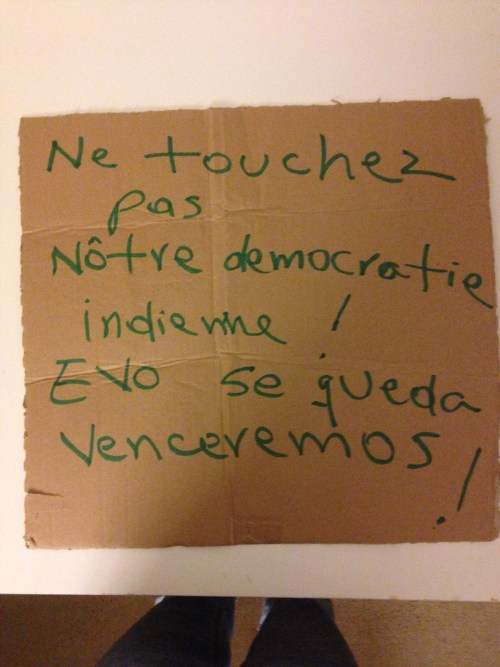 Ne touchez
pas
Nôtre democratie
indienne !
Evo se queda
venceremos !